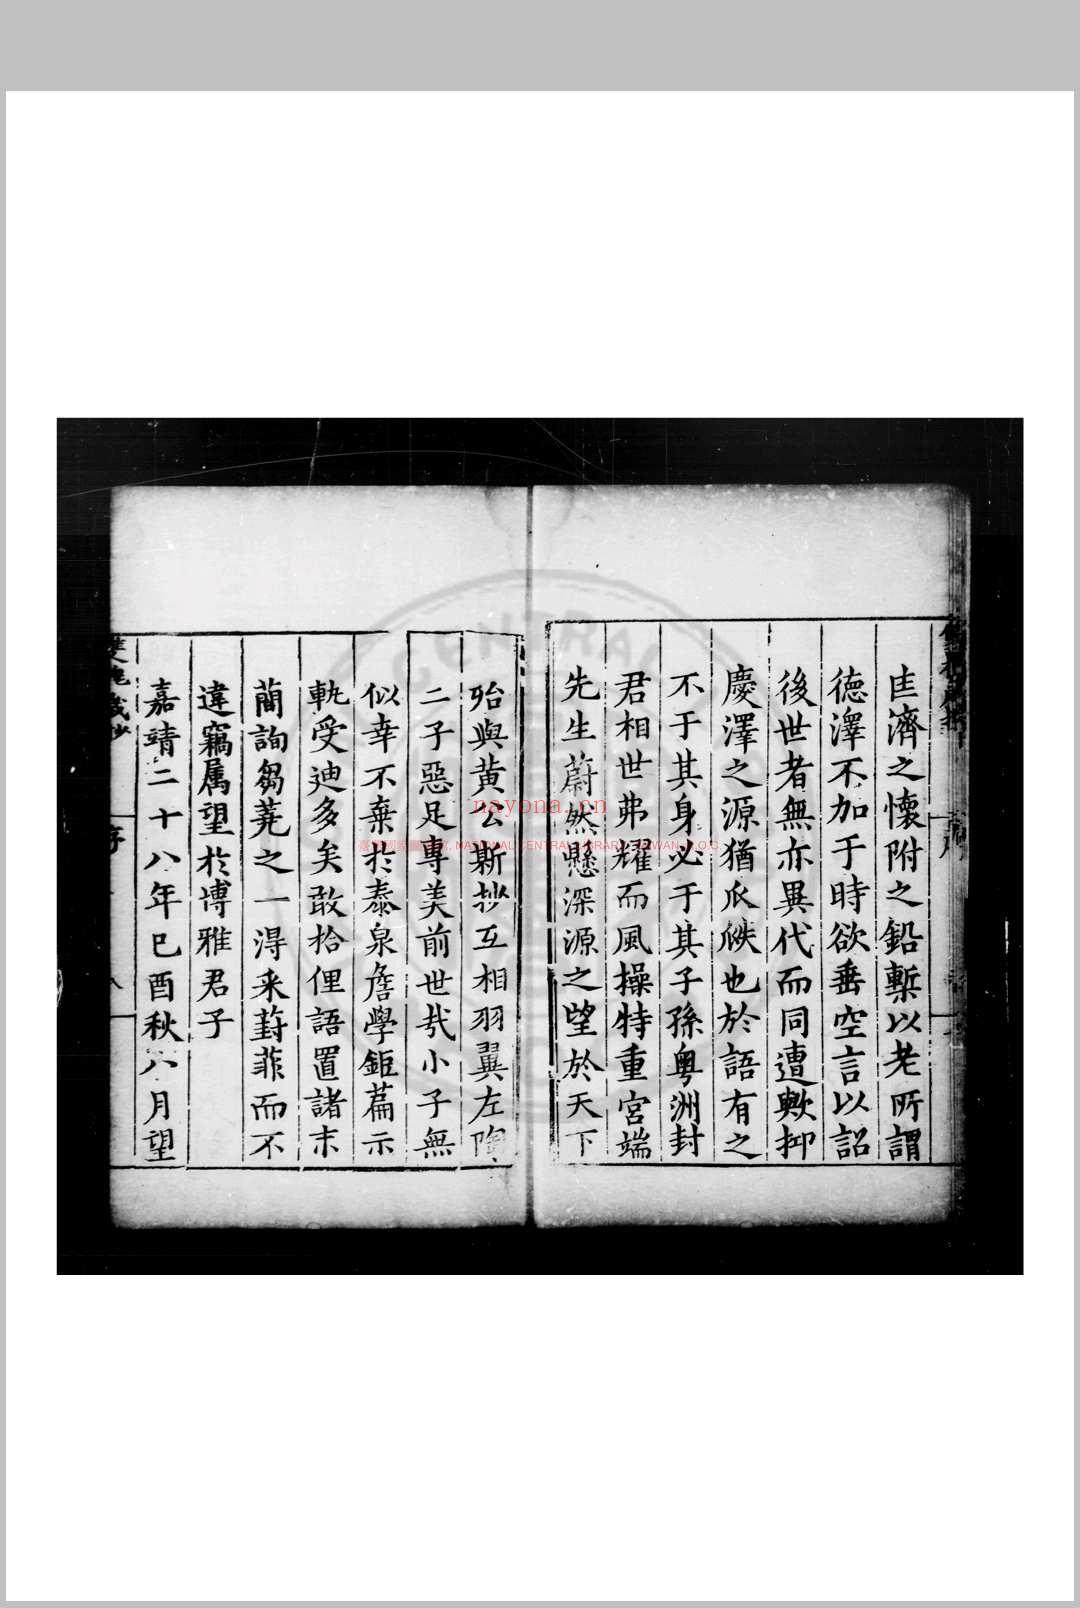 匡濟之懷附之鉛槧以老所謂
德澤不加于時欲垂空言以詔
後世者無亦異代而同遭歟抑
慶澤之源猶瓜瓞也於語有之
不于其身必于其子孫粵洲封
君相世弗耀而風操特重宮端
先生蔚然懸深源之望於天下
殆與黃公斯抄互相羽翼左陶
二子惡足專美前世哉小子無
似幸不棄於泰泉詹學鉅篇示
軌受迪多矣敢拾俚語置諸末
簡詢芻蕘之一得采葑菲而不
違竊属望於博雅君子
嘉靖二十八年巳酉秋八月望
雙槐歲抄
序
nayona.cn
NATIONAL CENTRAL LIBRARY, TAIWAN, R.O.C
CENTRAL